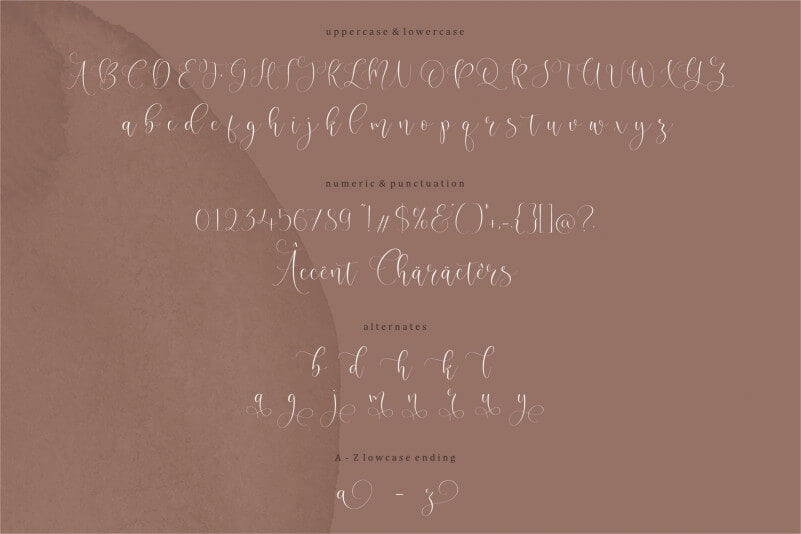 uppercase & lowercase
A B C D E F G H I J K L M N O P Q R S T U V W X Y Z
a b c d e f g h i j k l m n o p q r s t u v w x y z
numeric & punctuation
0123456789 ~!#$%&()*+,-.{}[]@?
Âccënt Chäräctêrs
alternates
b d h k l
a g j m n r u y
A - Z lowcase ending
a - z